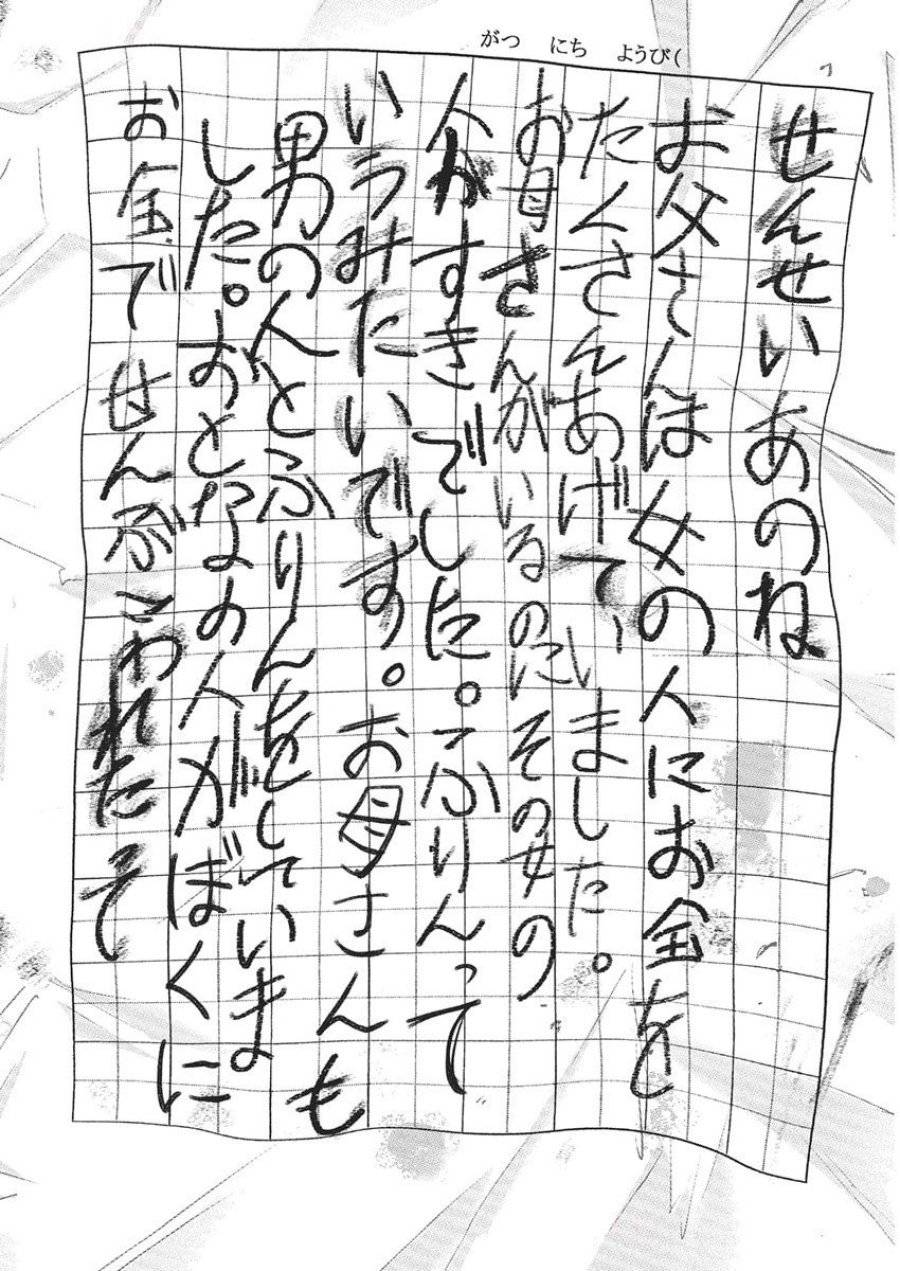 がつ にち ようび(
せんせいあのね
お父さんは女の人にお金を
たくさんあげて、いました。
お母さんがいるのにその女の
人がすきでした。ふりんって
いうみたいです。お母さんも
男の人とふりんをしていま
した。おとなの人がぼくに
お金でせんぶこわれたそ